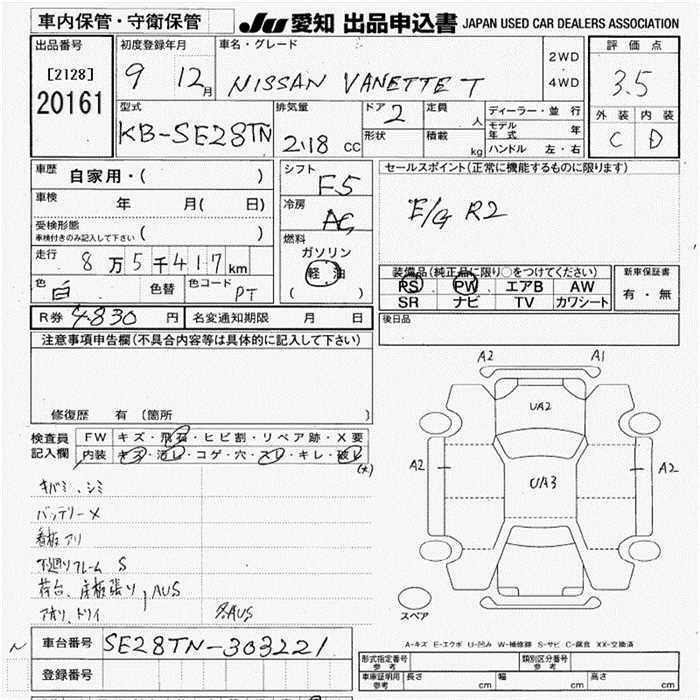 車内保管・守衛保管
JU 愛知 出品申込書 JAPAN USED CAR DEALERS ASSOCIATION
出品番号
[2128]
20161
初度登録年月
9 12月
車名・グレード
NISSAN VANETTE T
2WD
4WD
評価点
3.5
外装 内装
C D
型式
KB-SE28TN
排気量
2.18 cc
ドア 2
形状
定員 人
積載 kg
ディーラー・並行
モデル年式 年
ハンドル 左・右
車歴 自家用・( )
車検 年 月( 日)
受検形態
車検付きのみ記入して下さい ( )
走行 8万5千417km
色 白 色替 色コード PT
シフト F5
冷房 AC
燃料
ガソリン
軽油
( )
セールスポイント(正常に機能するものに限ります)
E/G R2
装備品(純正品に限り○をつけてください)
PS PW エアB AW
SR ナビ TV カワシート
新車保証書
有・無
R券 4830 円 名変通知期限 月 日
後日品
注意事項申告欄(不具合内容等は具体的に記入して下さい)
修復歴 有 〔箇所 〕
検査員記入欄
FW キズ・飛石・ヒビ割・リペア跡・X要
内装 キズ・汚レ・コゲ・穴・スレ・キレ・破レ
(大)
キバミ、シミ
バッテリーX
看板アリ
下廻りフレーム S
荷台、床板張り、AUS
アオリ、トリイ
各AUS
A2 A1
UA2
A2 UA3 A2
スペア
A-キズ E-エクボ U-凹み W-補修跡 S-サビ C-腐食 XX-交換済
車台番号 SE28TN-303221
登録番号
形式指定番号 参考
類別区分番号 参考
車庫証明用 参考 長さ cm 幅 cm 高さ cm